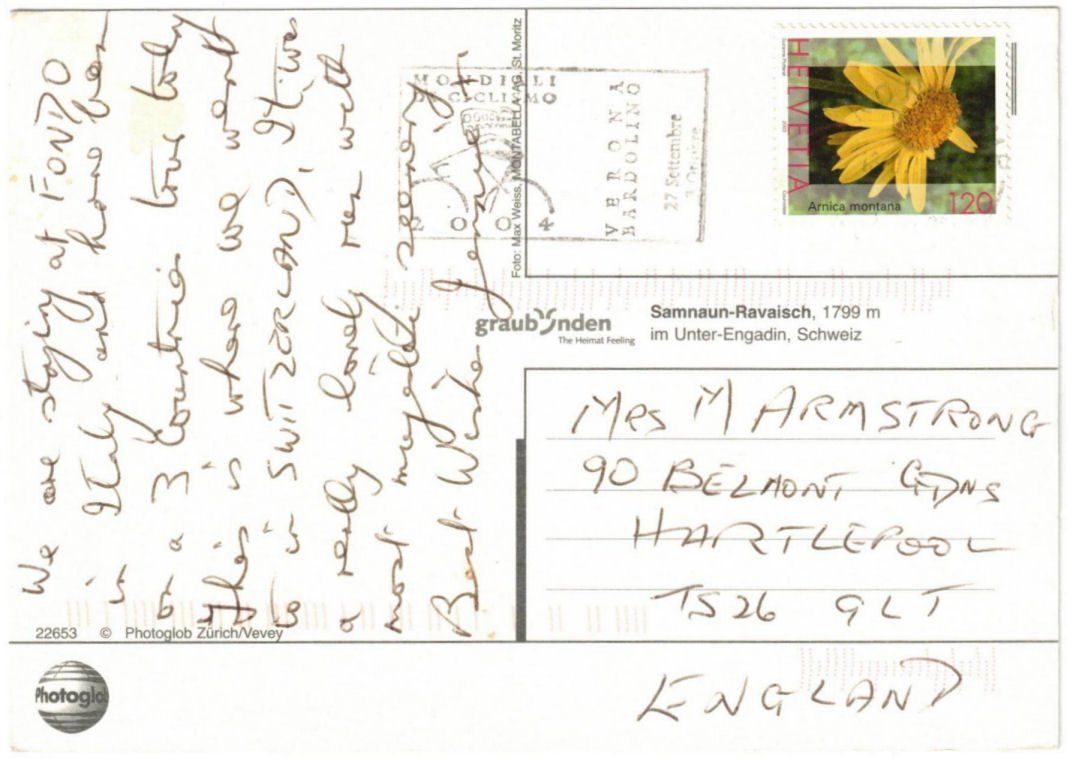 We are staying at FONDO
in Italy and have been
on a 3 countries tour today
This is where we went
to in SWITZERLAND, It was
a really lovely run with
most majestic scenery
Best Wishes
MONDIALI
CICLISMO
2004
VERONA
BARDOLINO
27 Settembre
HELVETIA
Arnica montana
120
Foto: Max Weiss, MONTABELLA AG, St. Moritz
graubünden
The Heimat Feeling
Samnaun-Ravaisch, 1799 m
im Unter-Engadin, Schweiz
Mrs M ARMSTRONG
90 BELMONT GDNS
HARTLEPOOL
TS26 9LT
ENGLAND
22653 © Photoglob Zürich/Vevey
Photoglob